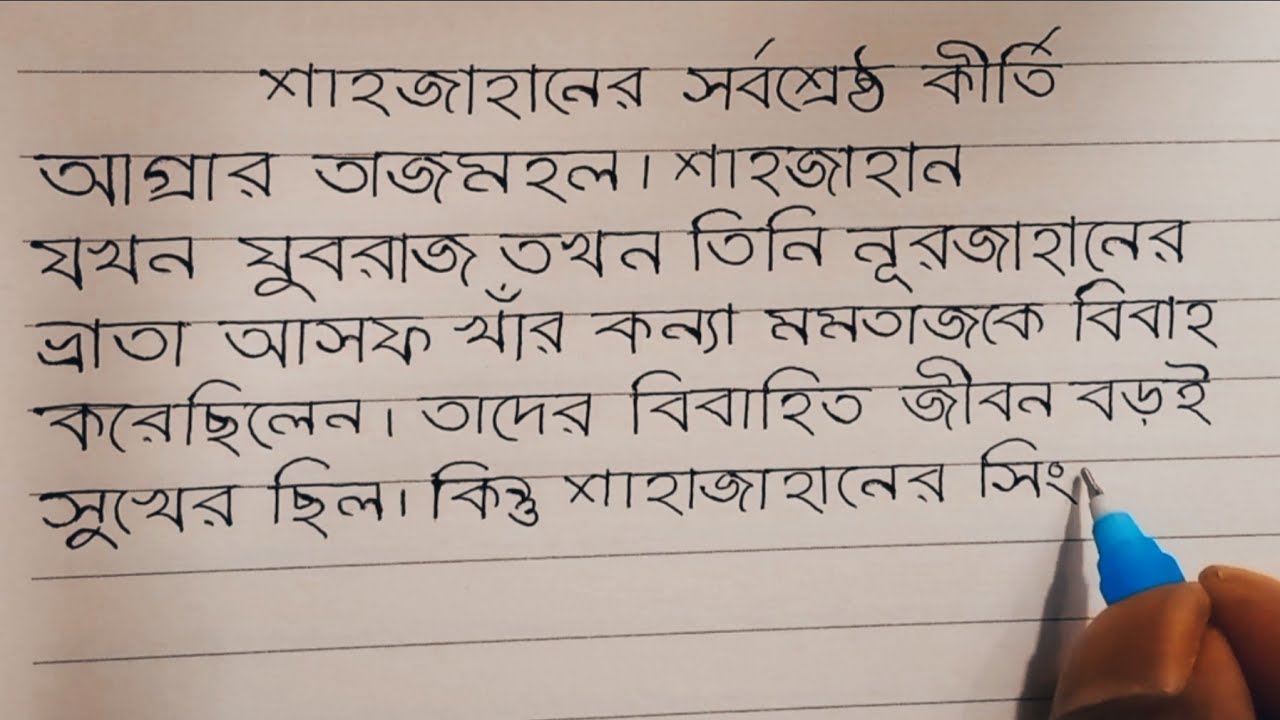 শাহজাহানের সর্বশ্রেষ্ঠ কীর্তি
আগ্রার তাজমহল। শাহজাহান
যখন যুবরাজ তখন তিনি নূরজাহানের
ভ্রাতা আসফ খাঁর কন্যা মমতাজকে বিবাহ
করেছিলেন। তাদের বিবাহিত জীবন বড়ই
সুখের ছিল। কিন্তু শাহাজাহানের সিং